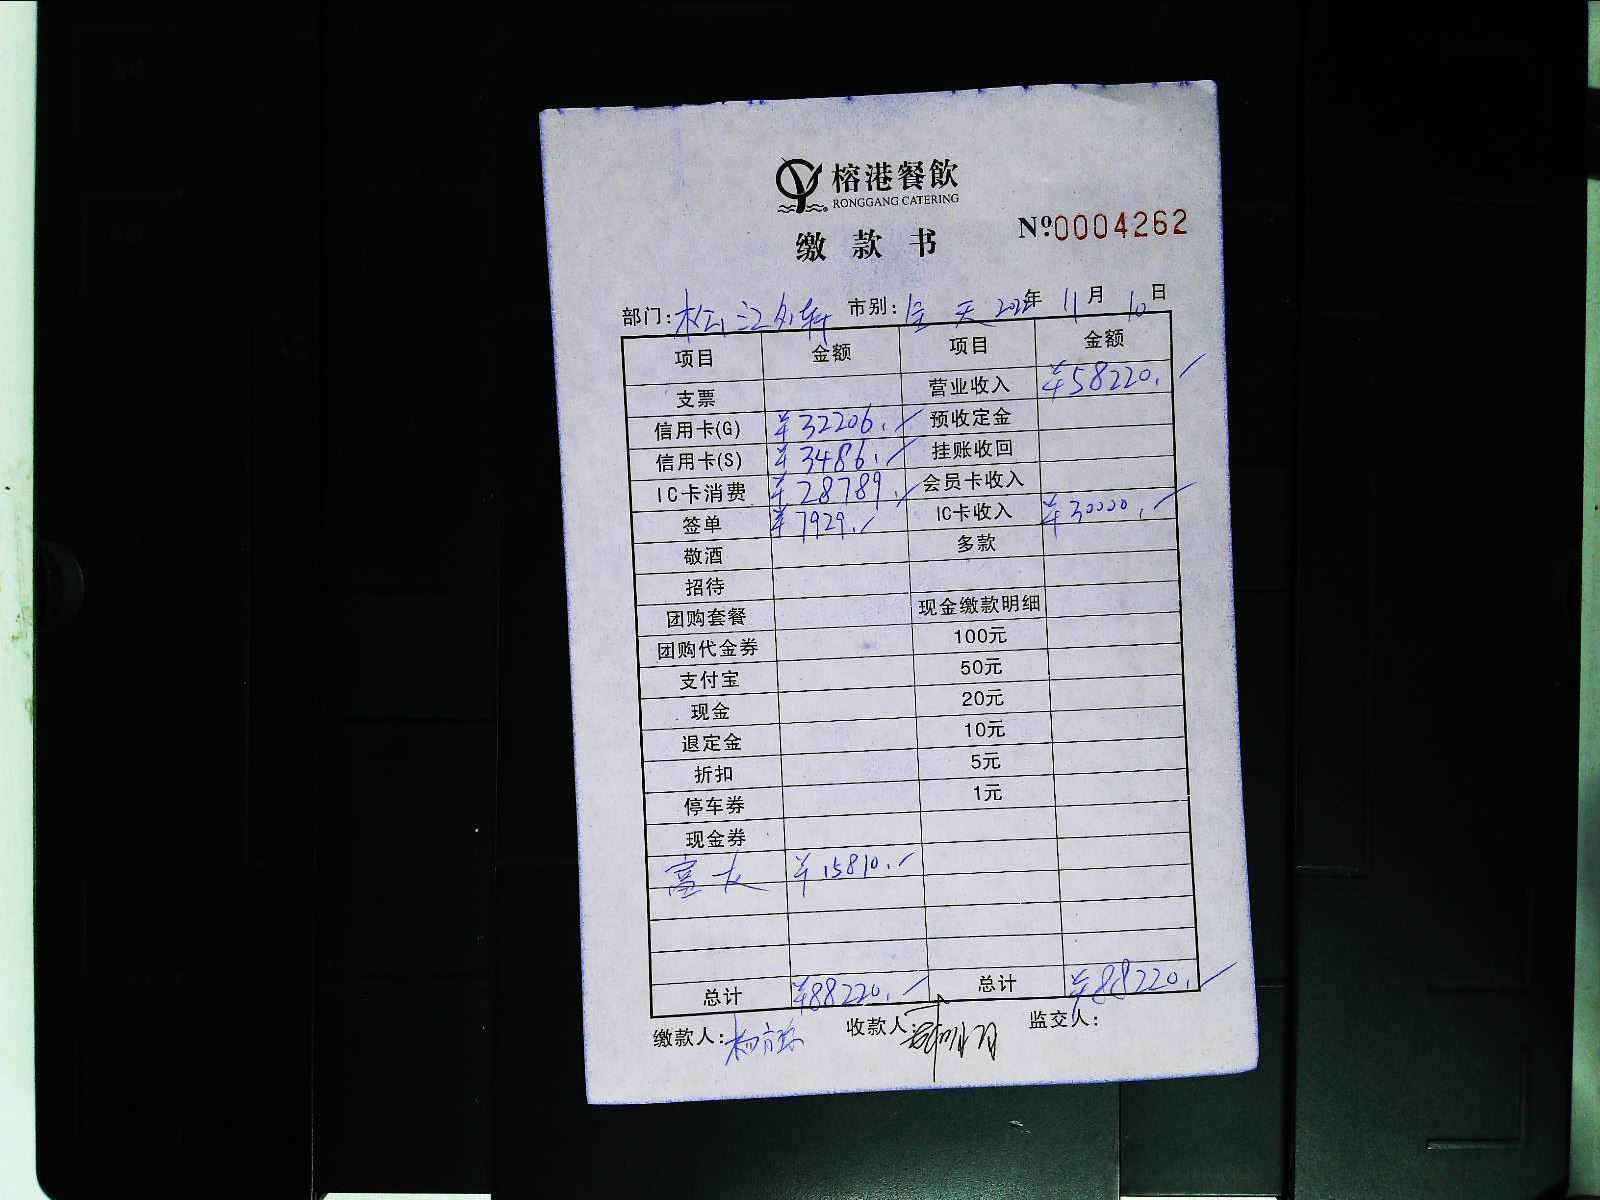 榕港餐飲
RONGGANG CATERING
缴款书
№0004262
部门: 松江 市别: 全天 202年 11月 10日
项目 金额 项目 金额
支票 营业收入 ¥58220.
信用卡(G) ¥32206. 预收定金
信用卡(S) ¥3486. 挂账收回
IC卡消费 ¥28789. 会员卡收入
签单 ¥7929. IC卡收入 ¥30000.
敬酒 多款
招待
团购套餐 现金缴款明细
团购代金券 100元
支付宝 50元
现金 20元
退定金 10元
折扣 5元
停车券 1元
现金券
¥15810.
总计 ¥88220. 总计 ¥88220.
缴款人: 收款人: 监交人: